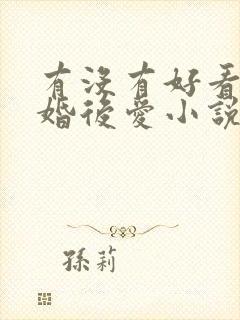 有沒有好看
婚後愛小説
孫莉